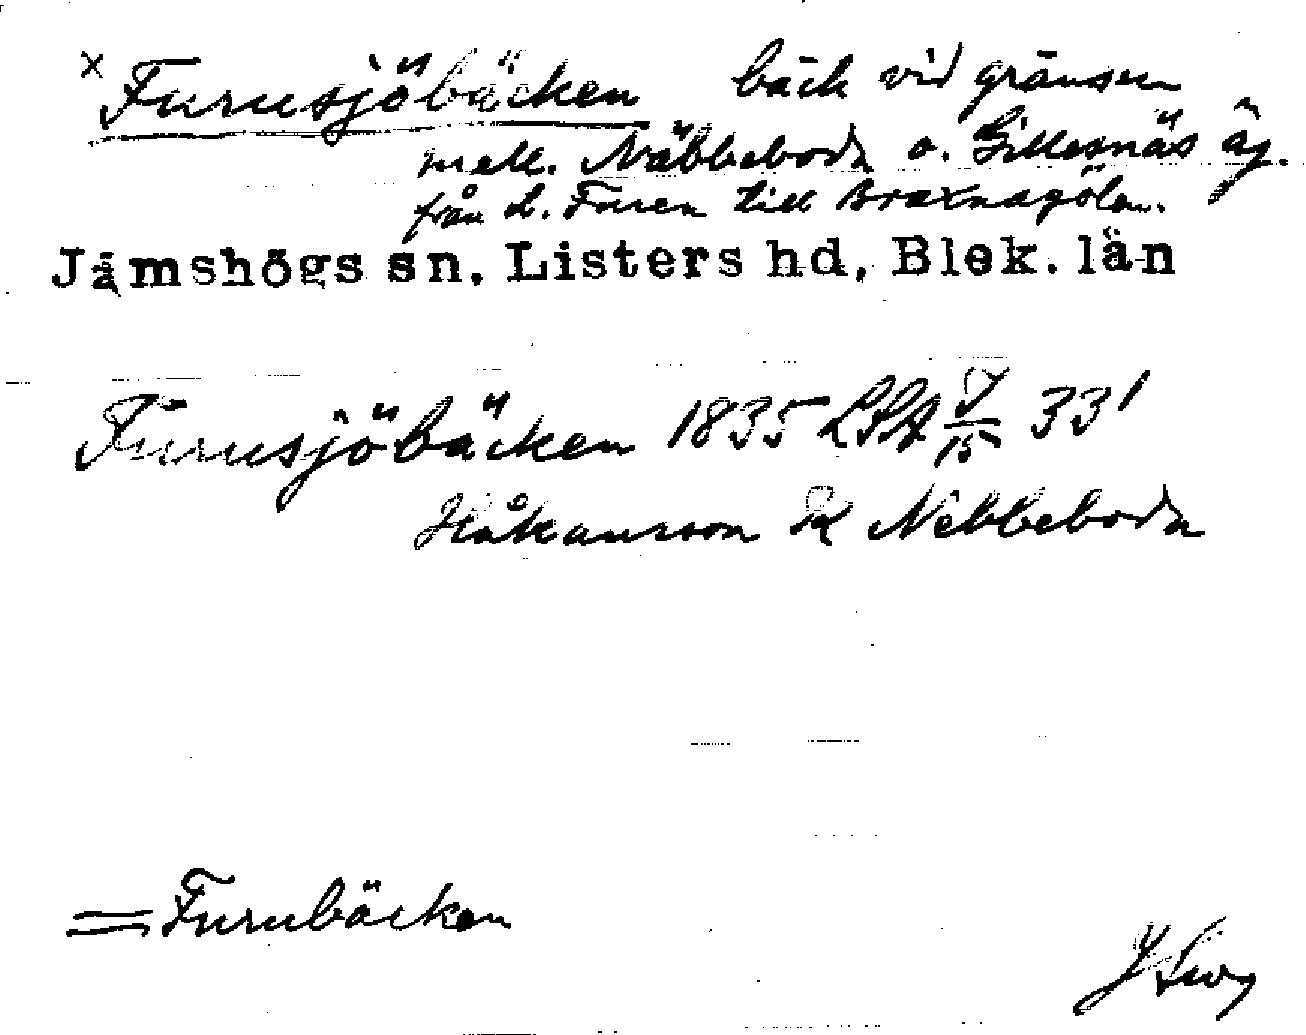 x Furusjöbäcken bäck vid gränsen
mell. Näbbeboda o. Gillesnäs äg.
från L. Furen till Braxnagölen.
Jämshögs sn, Listers hd, Blek. län
Furusjöbäcken 1835 LSA 33'
Håkansson Nebbeboda
= Furubäcken